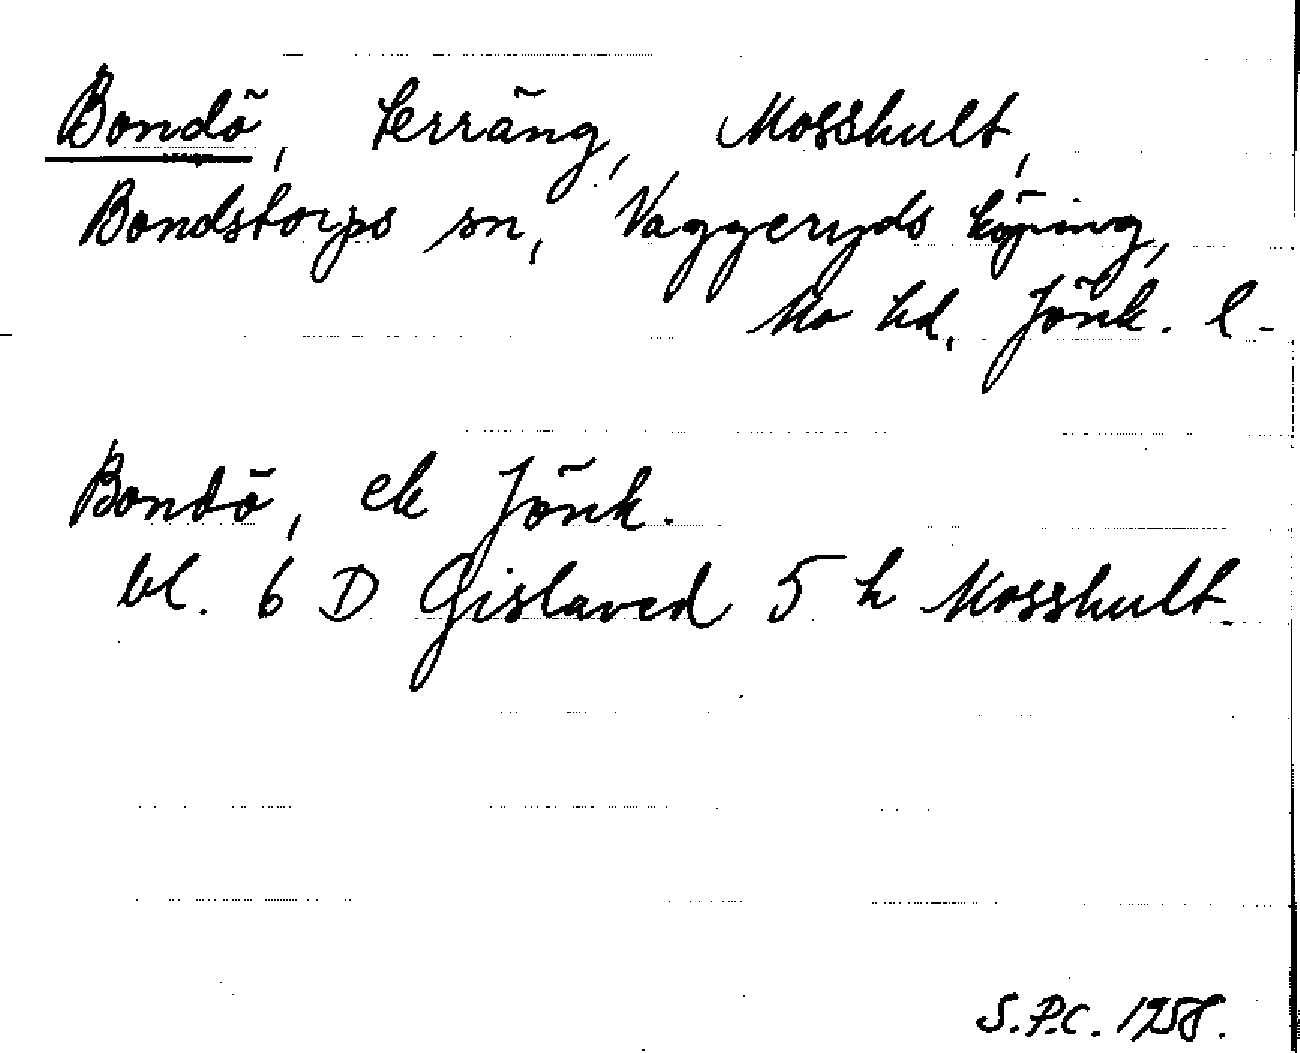 Bondö, terräng, Mosshult,
Bondstorps sn, Vaggeryds köping,
Mo hd, Jönk. l.
Bondö, ek Jönk.
bl. 6 D Gislaved 5 h Mosshult.
S.P.C. 1958.